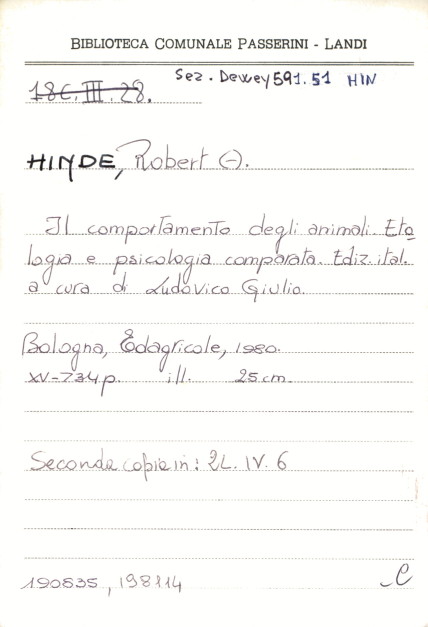 BIBLIOTECA COMUNALE PASSERINI - LANDI
Sez. Dewey 591.51 HIN
18C.III.28.
HINDE, Robert (-).
Il comportamento degli animali. Eto
logia e psicologia comparata. Ediz. ital.
a cura di Ludovico Giulio.
Bologna, Edagricole, 1980.
XV-734 p. ill. 25 cm.
Seconda copia in: 2L. IV. 6
190535, 198114
C